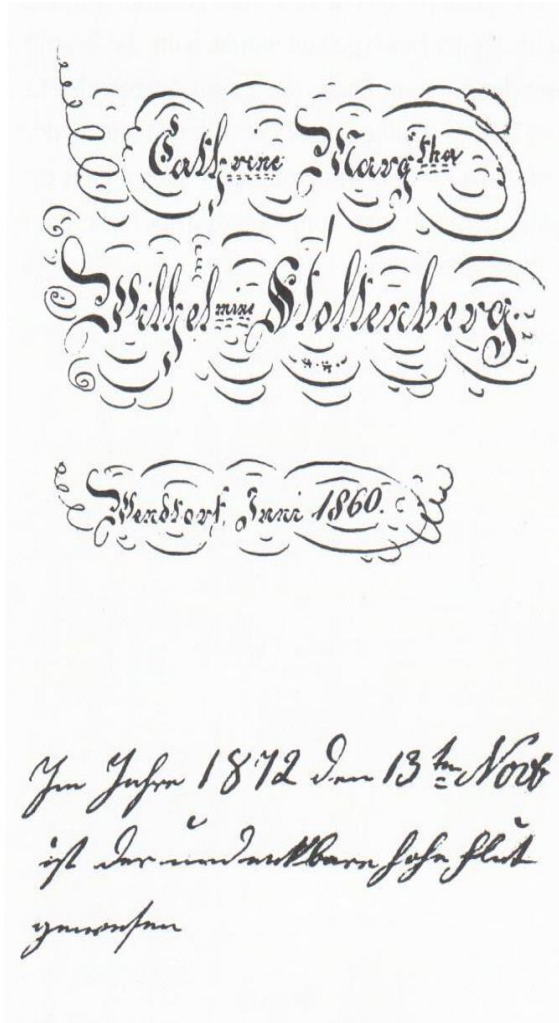 Cathrine Margtha
Wilhelmine Stoltenberg.
Wendtorf, Juni 1860.
Im Jahre 1872 den 13ten Novb
ist der undenkbare hohe Flut
gewesen